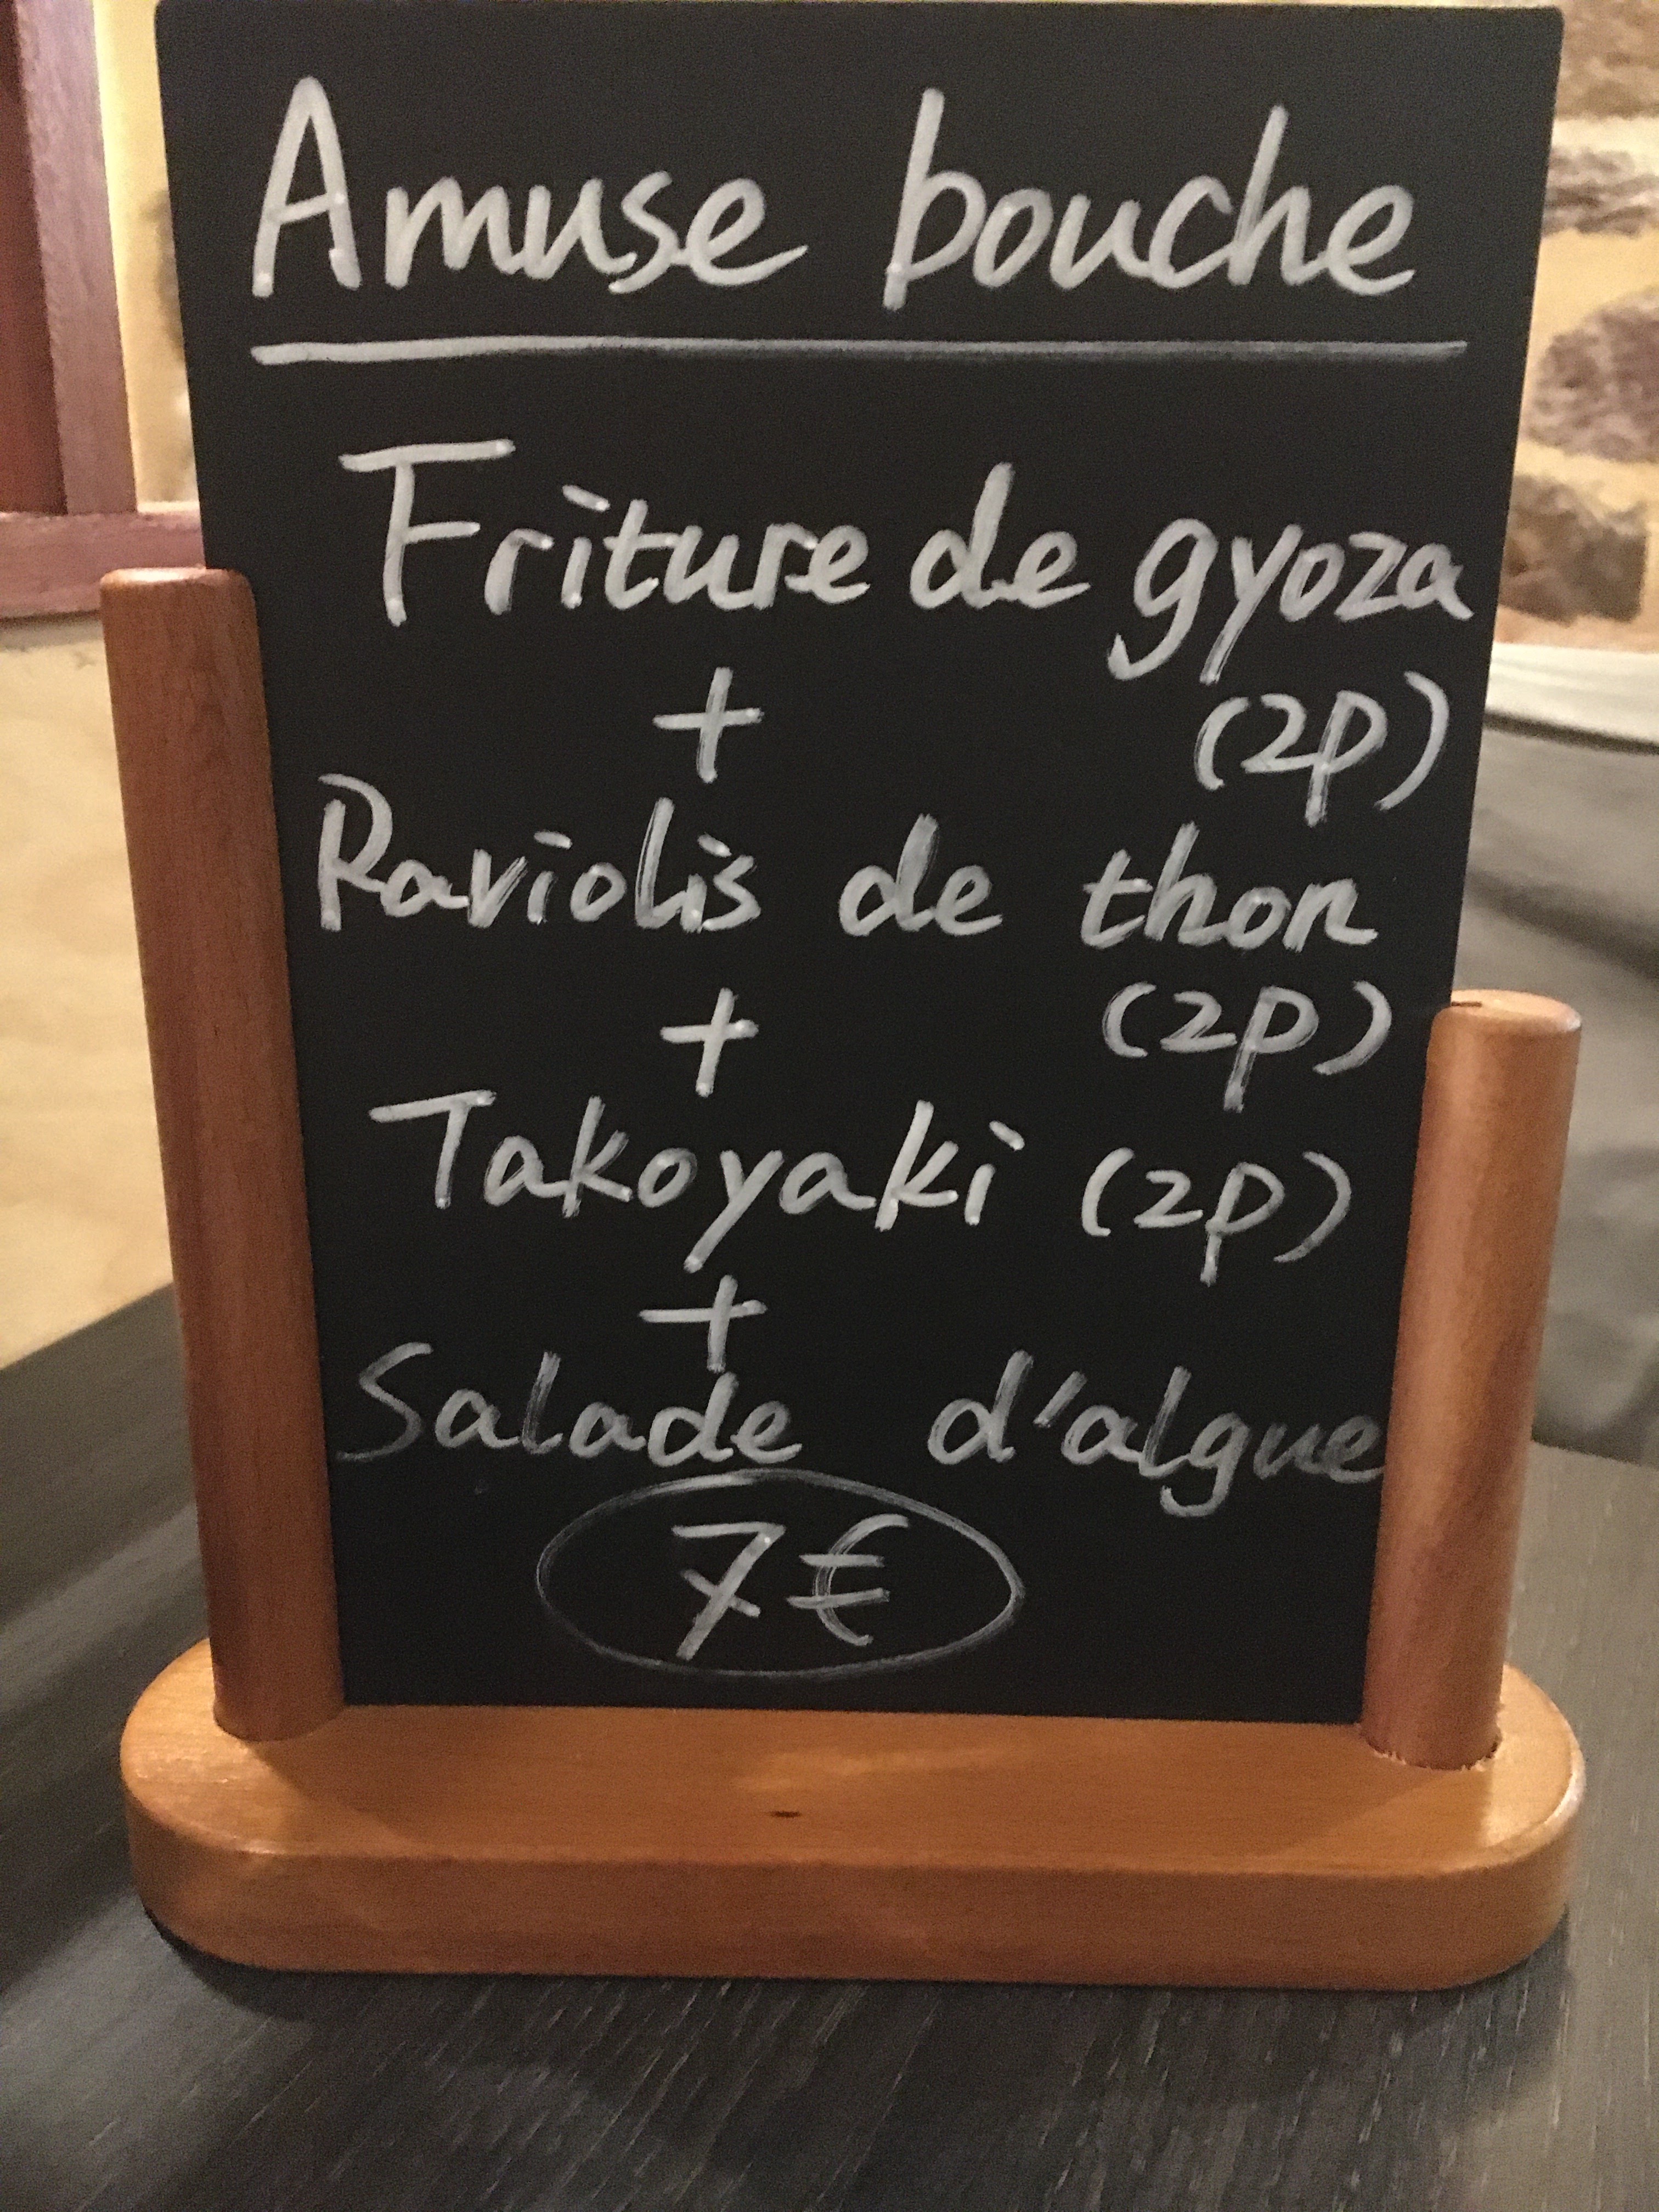 Amuse bouche
Friture de gyoza
+ (2p)
Raviolis de thon
+ (2p)
Takoyaki (2p)
+
Salade d'algue
7€